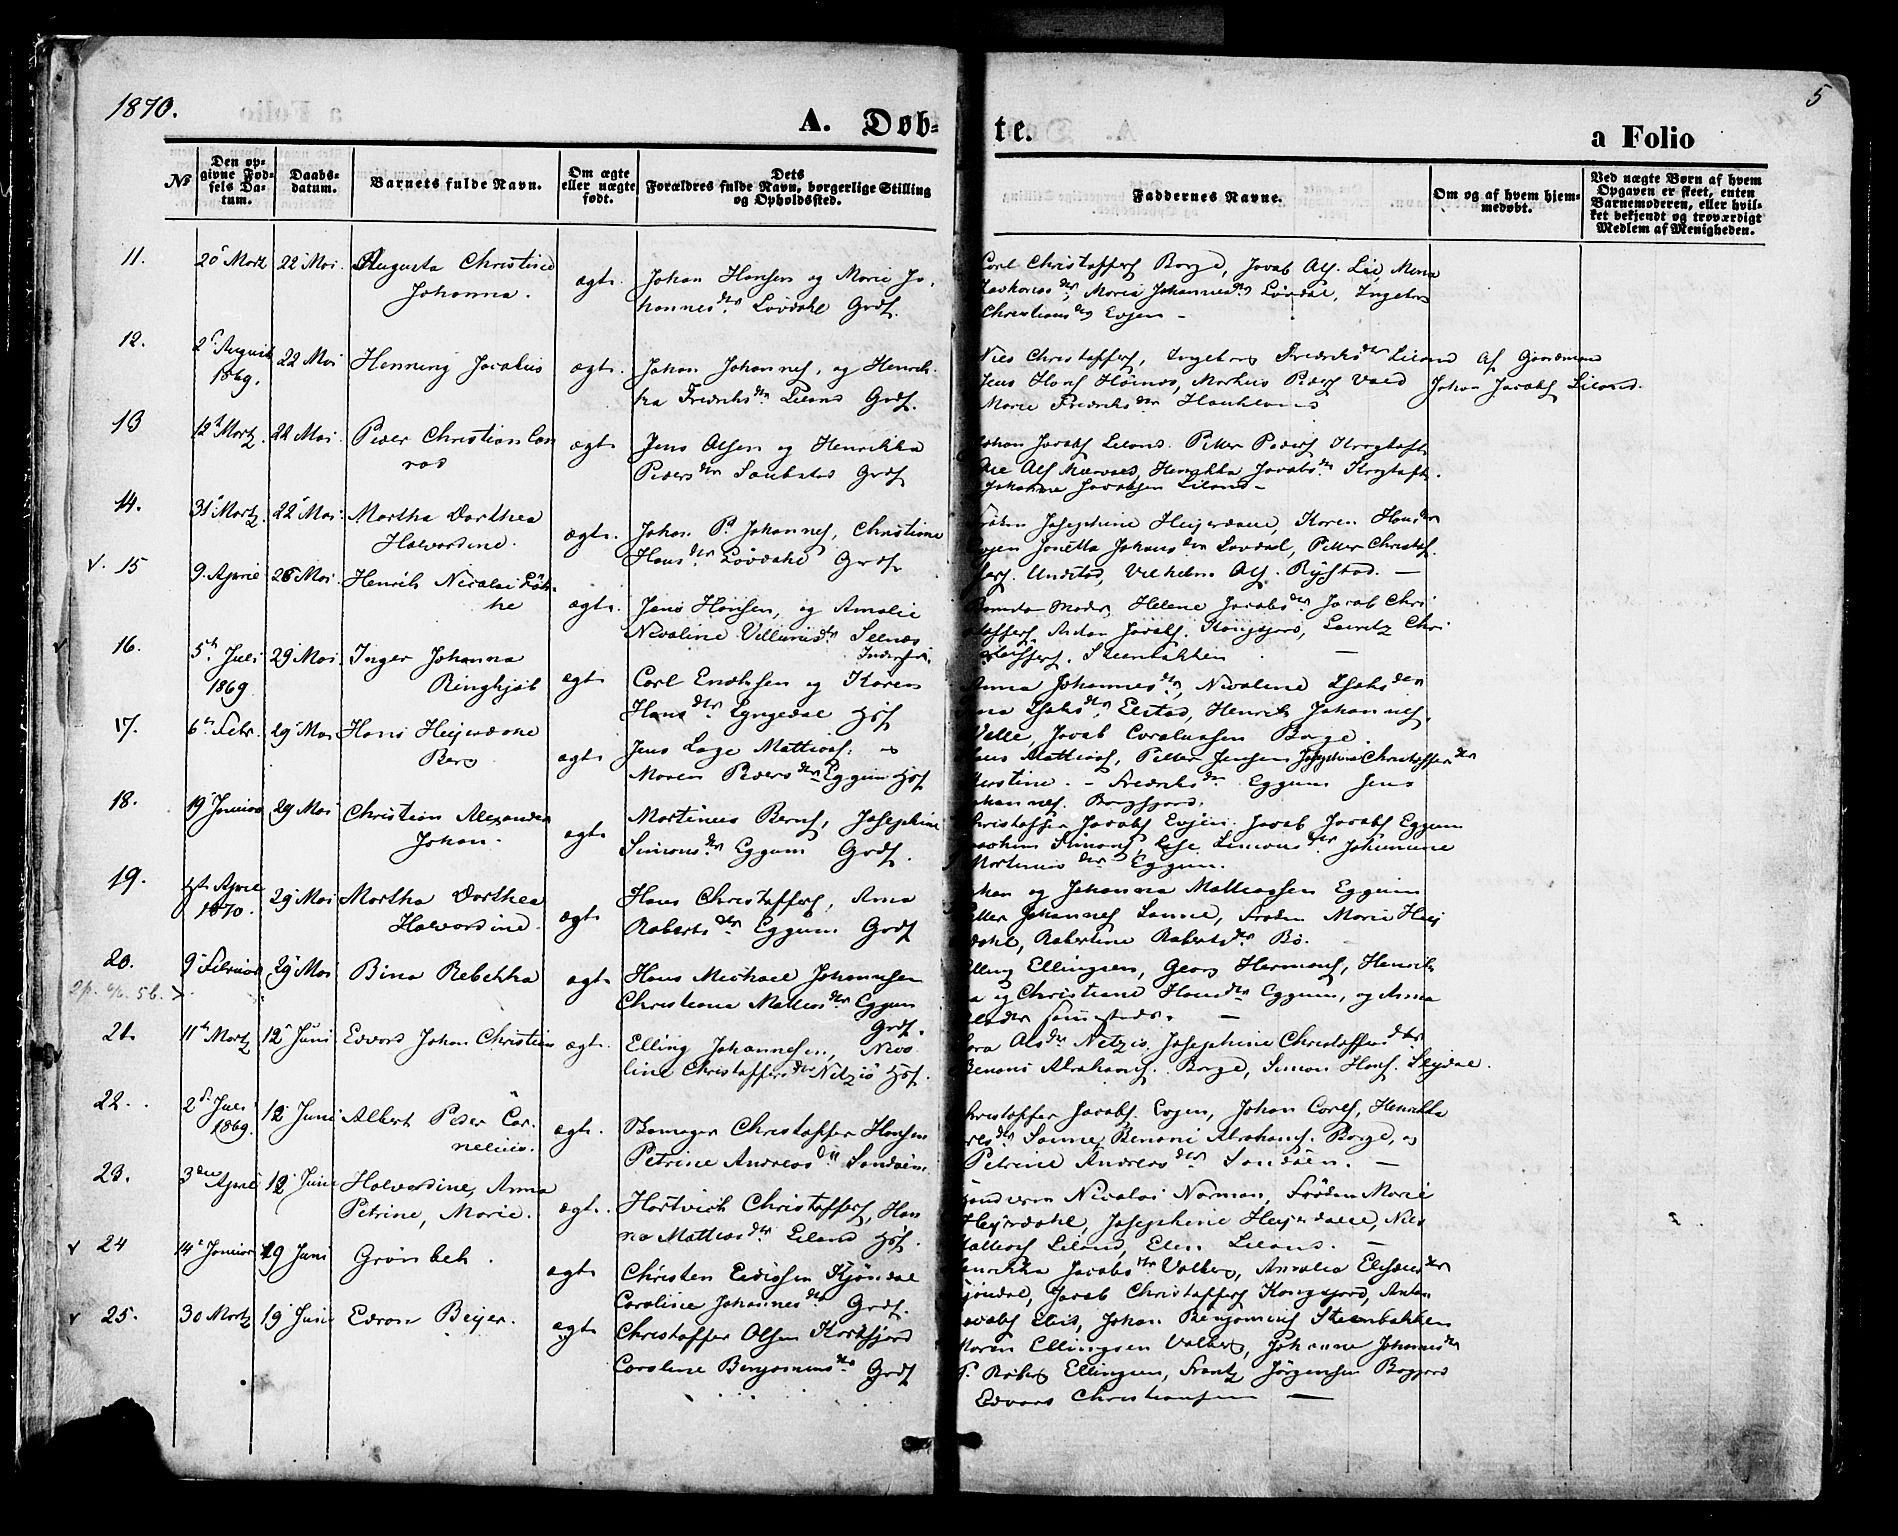 1870.
5
A. Døb-
te.
a Folio
No
Den op-
givne Fød-
sels Da-
tum.
Daabs-
datum.
Barnets fulde Navn.
Om ægte
eller uægte
født.
Dets
Forældres fulde Navn, borgerlige Stilling
og Opholdssted.
Faddernes Navne.
Om og af hvem hjem-
medøbt.
Ved uægte Børn af hvem
Opgaven er skeet, enten
Barnemoderen, eller hvil-
ket bekjendt og troværdigt
Medlem af Menigheden.
11. 20 Martz 22 Mai. Augusta Christine
Johanna.
ægte. Johan Hansen og Marie Jo-
hannesdtr Løvdahl Grdf.
Carl Christoffers Borge, Jacob Ols. Lie,
Marie Johannesdtr Løvdal, Ingeb
Christians Evjen -
12. 2 August
1869.
22 Mai Henning Jacobus
ægte. Johan Johannes, og Henrik-
ka Fredriksdtr Liland Grdf.
Nils Christoffers, Ingeborg Fredriksdtr Liland
Jens Hans Markus Peders
Marie Fredriksdtr Haukland
Af Gaardmand
Johan Jacobs Liland.
13 12 Martz. 22 Mai. Peder Christian Con
rad
ægte Jens Olsen og Henrikka
Pedersdtr Sandstad Grdf
Johan Jacobs Liland. Petter Peders
Ole Ols Henrikka Jacobsdtr
Johanna Jacobsen Liland -
14. 31 Martz. 22 Mai. Martha Dorthea
Halvardine.
ægte. Johan P. Johannes, Christiane
Hansdtr Løvdahl Grdf
Frøken Josephine Heyerdahl, Karen Hansdtr
Evjen Jonetta Johansdtr Løvdal, Petter Christof-
fers. Undstad, Vilhelm Ols. Rystad. -
v. 15 9. April 26 Mai. Henrik Nicolai
ægte. Jens Hansen, og Amalie
Nicoline Villumsdtr Selnæs
Moder, Helene Jacobsdtr Jacob Chri
stoffers, Anton Jacobs. Kongsjord, Lauritz Chri
stoffers. Steenbakken -
16. 5 Juli
1869
29 Mai. Inger Johanna
Ringhjøb
ægte Carl Enoksen og Karen
Hansdtr Lyngedal Hsf
Anna Johannesdtr, Nicoline Isaksdtr
Isaksdtr Elstad, Henrik Johannes,
Valle, Jacob Corneliussen Borge.
17. 6 Febr. 29 Mai Hans Heyerdahl
Berg
ægte Jens Lage Mattias. og
Maren Pedersdtr Eggum Hsf
Hans Mattias, Petter Jensen Josephine Christoffersdtr
Kerstine - Fredriksdtr Eggum Jens
Johannes. Borgfjord.
18. 19 Januar 29 Mai Christian Alexander
Johan.
ægte Martinus Bernt, Josephine
Simonsdtr Eggum Grdf.
Christoffer Jacobs Evjen. Jacob Jacobs Eggum
Joakim Simons, Else Simonsdtr Johannine
Martinusdtr Eggum.
19. April
1870.
29 Mai Martha Dorthea
Halvardine.
ægte Hans Christoffers, Anna
Robertsdtr Eggum Grdf
Johan og Johanna Mattiassen Eggum
Petter Johannes Sanne, Frøken Marie Hey
dahl, Robertine Robertsdtr Bø.
20. 9 Februar 29 Mai Bina Rebekka
ægte Hans Michael Johannesen
Christiana Mattiasdtr Eggum
Grdf.
Elling Ellingsen, Georg Hermans, Henrik-
ka og Christiane Hansdtr Eggum, og Anna
21. 11 Martz 12 Juni Edvard Johan Christian
ægte. Elling Johannesen, Nico
line Christoffersdtr Netziø Hsf.
Olsdtr Netziø. Josephine Christoffersdtr
Benoni Abrahams. Borge, Simon Hans.
22. 2 Juli
1869.
12 Juni Albert Peder Cor-
nelius.
ægte. Christoffer Hansen
Petrine Andreasdtr Sandøen.
Christoffer Jacobs. Evjen, Johan Carls, Henrikka
Sanne, Benoni Abrahams. Borge, og
Petrine Andreasdtr Sandøen. -
23. 3 April 12 Juni Halvardine, Anna
Petrine, Marie.
ægte. Hartvick Christoffers, Han
na Mattiasdtr Liland Hsf.
Nicolai Norman, Frøken Marie
Heyerdahl, Josephine Heyerdahl, Nils
Mattias Liland, Elen Liland. -
v 24 14 Januar 19 Juni Grønbek.
ægte Christen Kjøndal
Caroline Johannesdtr Grdf.
Henrikka Jacobsdtr Valberg, Amalia
Kjøndal, Jacob Christoffers Kongsjord, Anton
Jacobs Johan Benjamins Steenbakken
v 25. 30 Martz 19 Juni Edvon Beyer.
ægte Christoffer Olsen Kartfjord
Caroline Benjaminsdtr Grdf
Karen Ellingsen Valberg, Johanne Johannesdtr
Ellingsen, Frantz Jørgensen
Edvard Christiansen -